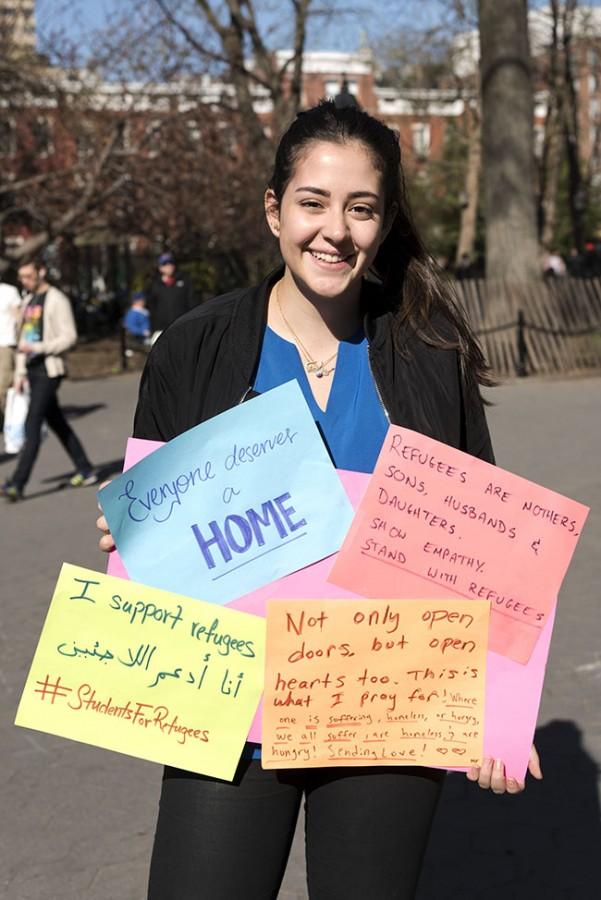 Everyone deserves
a
HOME
REFUGEES ARE MOTHERS,
SONS, HUSBANDS &
DAUGHTERS.
SHOW EMPATHY.
STAND WITH REFUGEES
I support refugees
أنا أدعم اللاجئين
#StudentsForRefugees
Not only open
doors, but open
hearts too. This is
what I pray for! Where
one is suffering, homeless, or hungry,
we all suffer, are homeless, & are
hungry! Sending Love! ♡♡